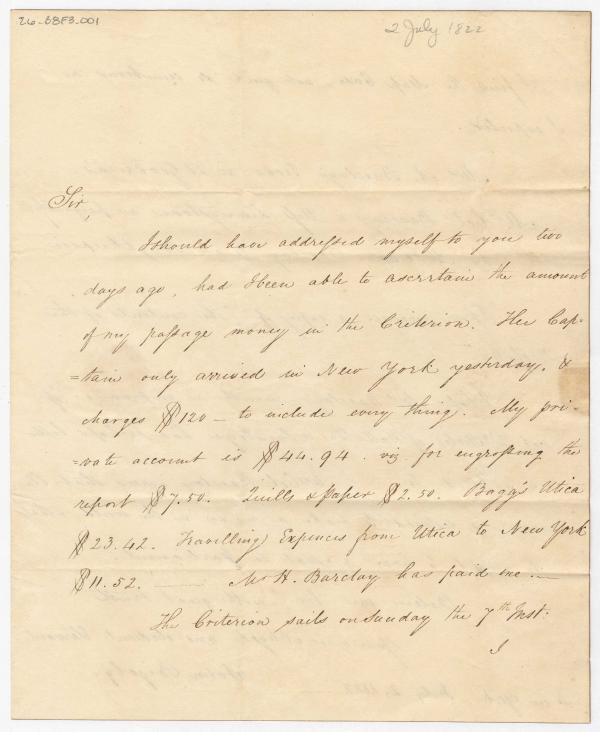 26-68F3.001
2 July 1822
Sir,
I should have addressed myself to you two
days ago, had I been able to ascertain the amount
of my passage money in the Criterion. Her Cap-
=tain only arrived in New York yesterday. &
charges $120 — to include every thing. My pri-
=vate account is $44.94. viz. for engrossing the
report $7.50. Quills & Paper $2.50. Bagg's Utica
$23.42. Travelling Expences from Utica to New York
$11.52. — Mr H. Barclay has paid me. —
The Criterion sails on Sunday the 7th Inst:
I